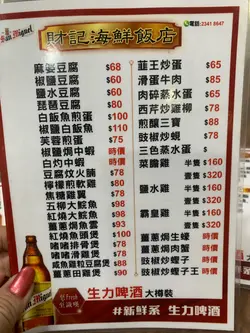 San Miguel
財記海鮮飯店
電話:2341 8647
麻婆豆腐 $68
椒鹽豆腐 $60
鹽水豆腐 $60
琵琶豆腐 $80
白飯魚煎蛋 $100
椒鹽白飯魚 $110
芙蓉煎蛋 $75
椒鹽焗中蝦 時價
白灼中蝦 時價
豆腐炆火腩 $78
檸檬煎軟雞 $80
焦糖雞翼 $78
五柳大鯇魚 $98
紅燒大鯇魚 $98
薑蔥焗魚雲 $98
紅燒魚頭煲 $100
啫啫排骨煲 $78
啫啫滑雞煲 $78
咸魚雞粒豆腐煲 $88
薑蔥田雞煲 $90
韮王炒蛋 $65
滑蛋牛肉 $85
肉碎蒸水蛋 $65
西芹炒雞柳 $78
煎釀三寶 $88
豉椒炒蜆 $78
三色蒸水蛋 $
菜膽雞 半隻 $160
壹隻 $320
鹽水雞 半隻 $160
壹隻 $320
霸皇雞 半隻 $160
壹隻 $320
薑蔥焗生蠔 時價
薑蔥焗肉蟹 時價
豉椒炒蟶子 時價
豉椒炒蟶子王 時價
生力啤酒 大樽裝
#新鮮系 生力啤酒